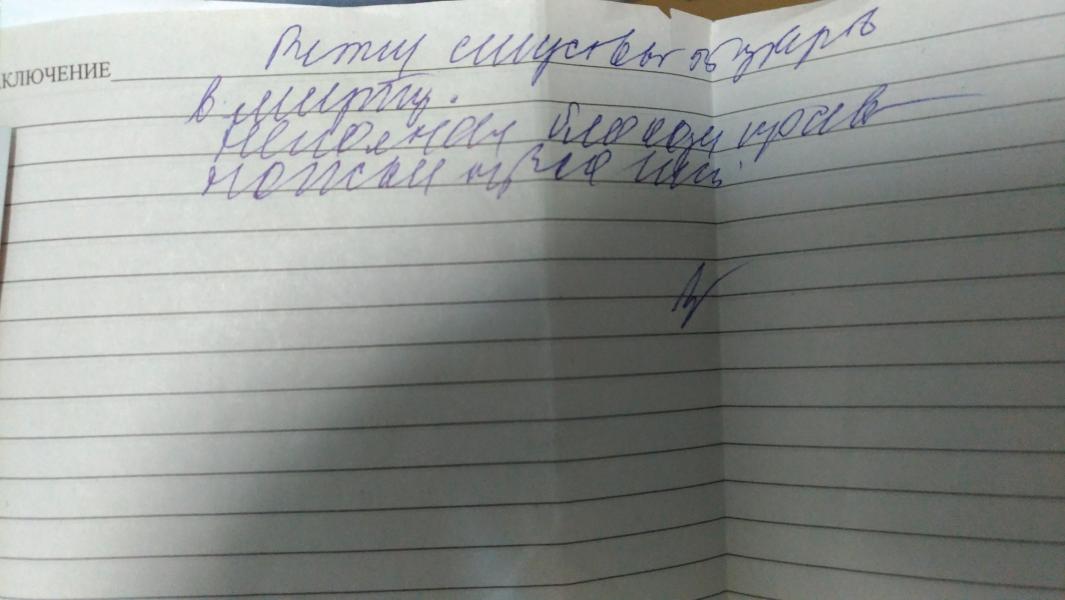 КЛЮЧЕНИЕ Ритм синусовый 62 ударов
в минуту.
Неполная блокада прав
ножки пучка Гиса